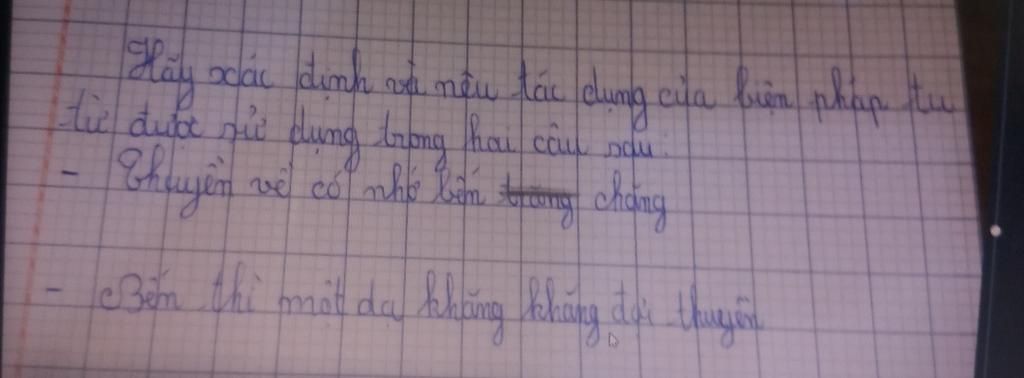 Hãy xác định và nêu tác dụng của biện pháp tu
từ được sử dụng trong hai câu sau.
- Thuyền về có nhớ bến chăng
- Bến thì một dạ khăng khăng đợi thuyền